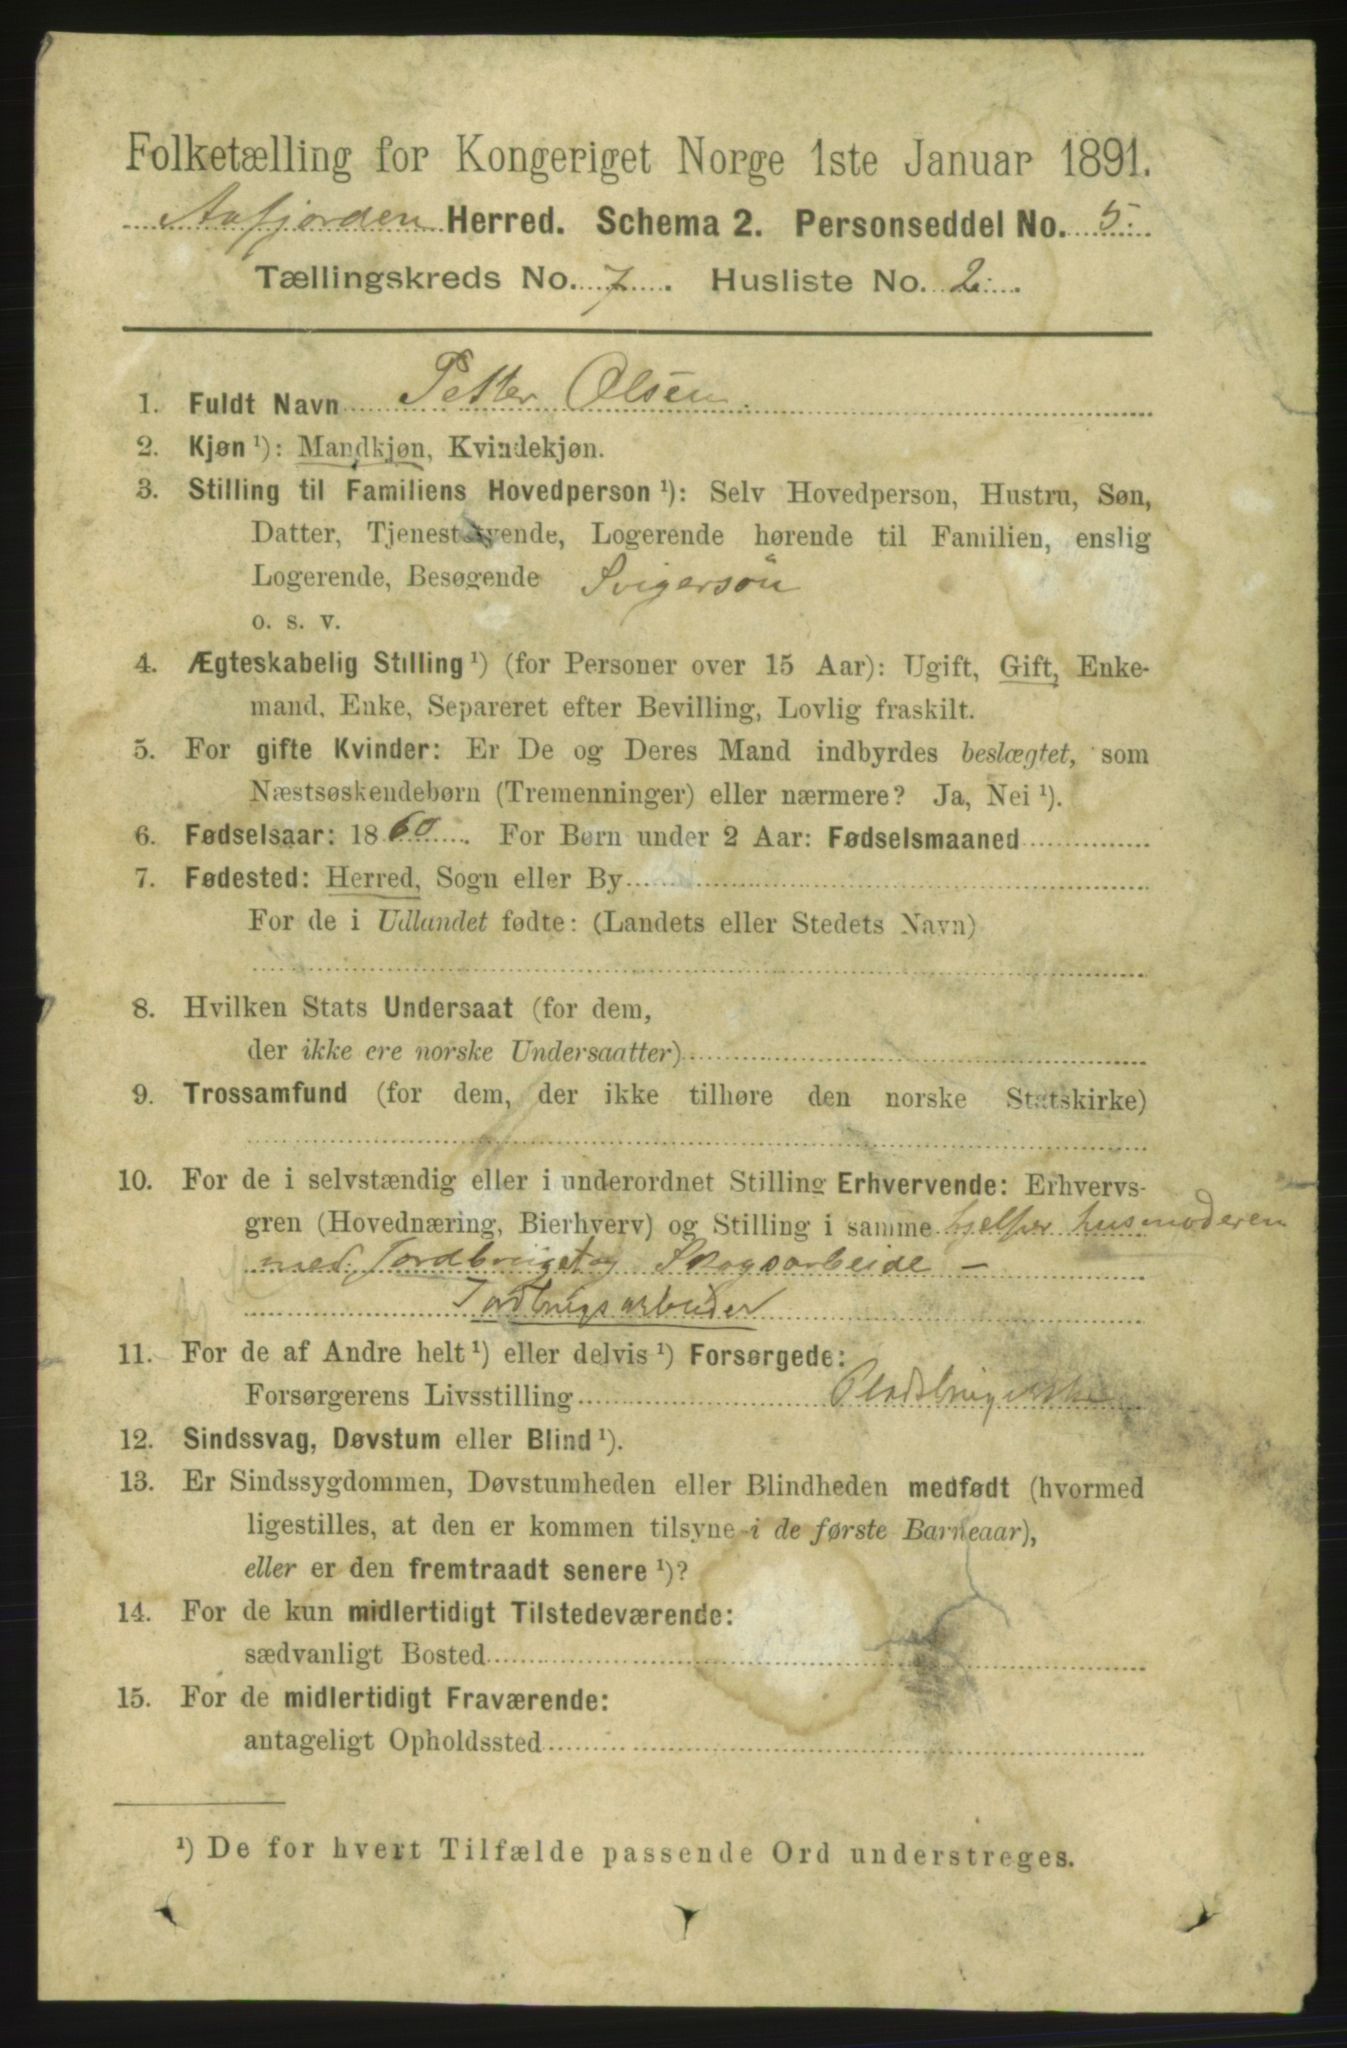 Folketælling for Kongeriget Norge 1ste Januar 1891.
Aafjorden Herred. Schema 2. Personseddel No. 5.
Tællingskreds No. 7. Husliste No. 2.
1. Fuldt Navn Petter Olsen.
2. Kjøn ¹): Mandkjøn, Kvindekjøn.
3. Stilling til Familiens Hovedperson ¹): Selv Hovedperson, Hustru, Søn,
Datter, Tjenestetyende, Logerende hørende til Familien, enslig
Logerende, Besøgende Svigersøn
o. s. v.
4. Ægteskabelig Stilling ¹) (for Personer over 15 Aar): Ugift, Gift, Enke-
mand, Enke, Separeret efter Bevilling, Lovlig fraskilt.
5. For gifte Kvinder: Er De og Deres Mand indbyrdes beslægtet, som
Næstsøskendebørn (Tremenninger) eller nærmere? Ja, Nei ¹).
6. Fødselsaar: 1860. For Børn under 2 Aar: Fødselsmaaned
7. Fødested: Herred, Sogn eller By
For de i Udlandet fødte: (Landets eller Stedets Navn)
8. Hvilken Stats Undersaat (for dem,
der ikke ere norske Undersaatter)
9. Trossamfund (for dem, der ikke tilhøre den norske Statskirke)
10. For de i selvstændig eller i underordnet Stilling Erhvervende: Erhvervs-
gren (Hovednæring, Bierhverv) og Stilling i samme hjelper husmoderen
med Jordbruget og Skogsarbeide –
Jordbrugsarbeider
11. For de af Andre helt ¹) eller delvis ¹) Forsørgede:
Forsørgerens Livsstilling
12. Sindssvag, Døvstum eller Blind ¹).
13. Er Sindssygdommen, Døvstumheden eller Blindheden medfødt (hvormed
ligestilles, at den er kommen tilsyne i de første Barneaar),
eller er den fremtraadt senere ¹)?
14. For de kun midlertidigt Tilstedeværende:
sædvanligt Bosted
15. For de midlertidigt Fraværende:
antageligt Opholdssted
¹) De for hvert Tilfælde passende Ord understreges.